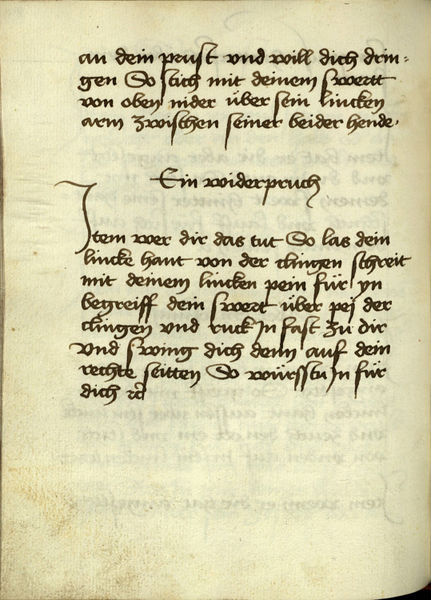 an dein prust vnd will dich drin=
gen So stich mit deinem swertt
von oben nider über sein lincken
arm zwischen seiner beider hende.
Ein widerpruch
Item wer dir das tut So las dein
lincke hant von der clingen schreit
mit deinem lincken pein für yn
begreiff dein swert über pej der
clingen vnd ruck In fast zu dir
vnd swing dich denn auf dein
rechte seitten So würfstu In für
dich